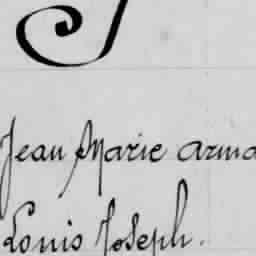 J
Jean Marie Arma
Louis Joseph.